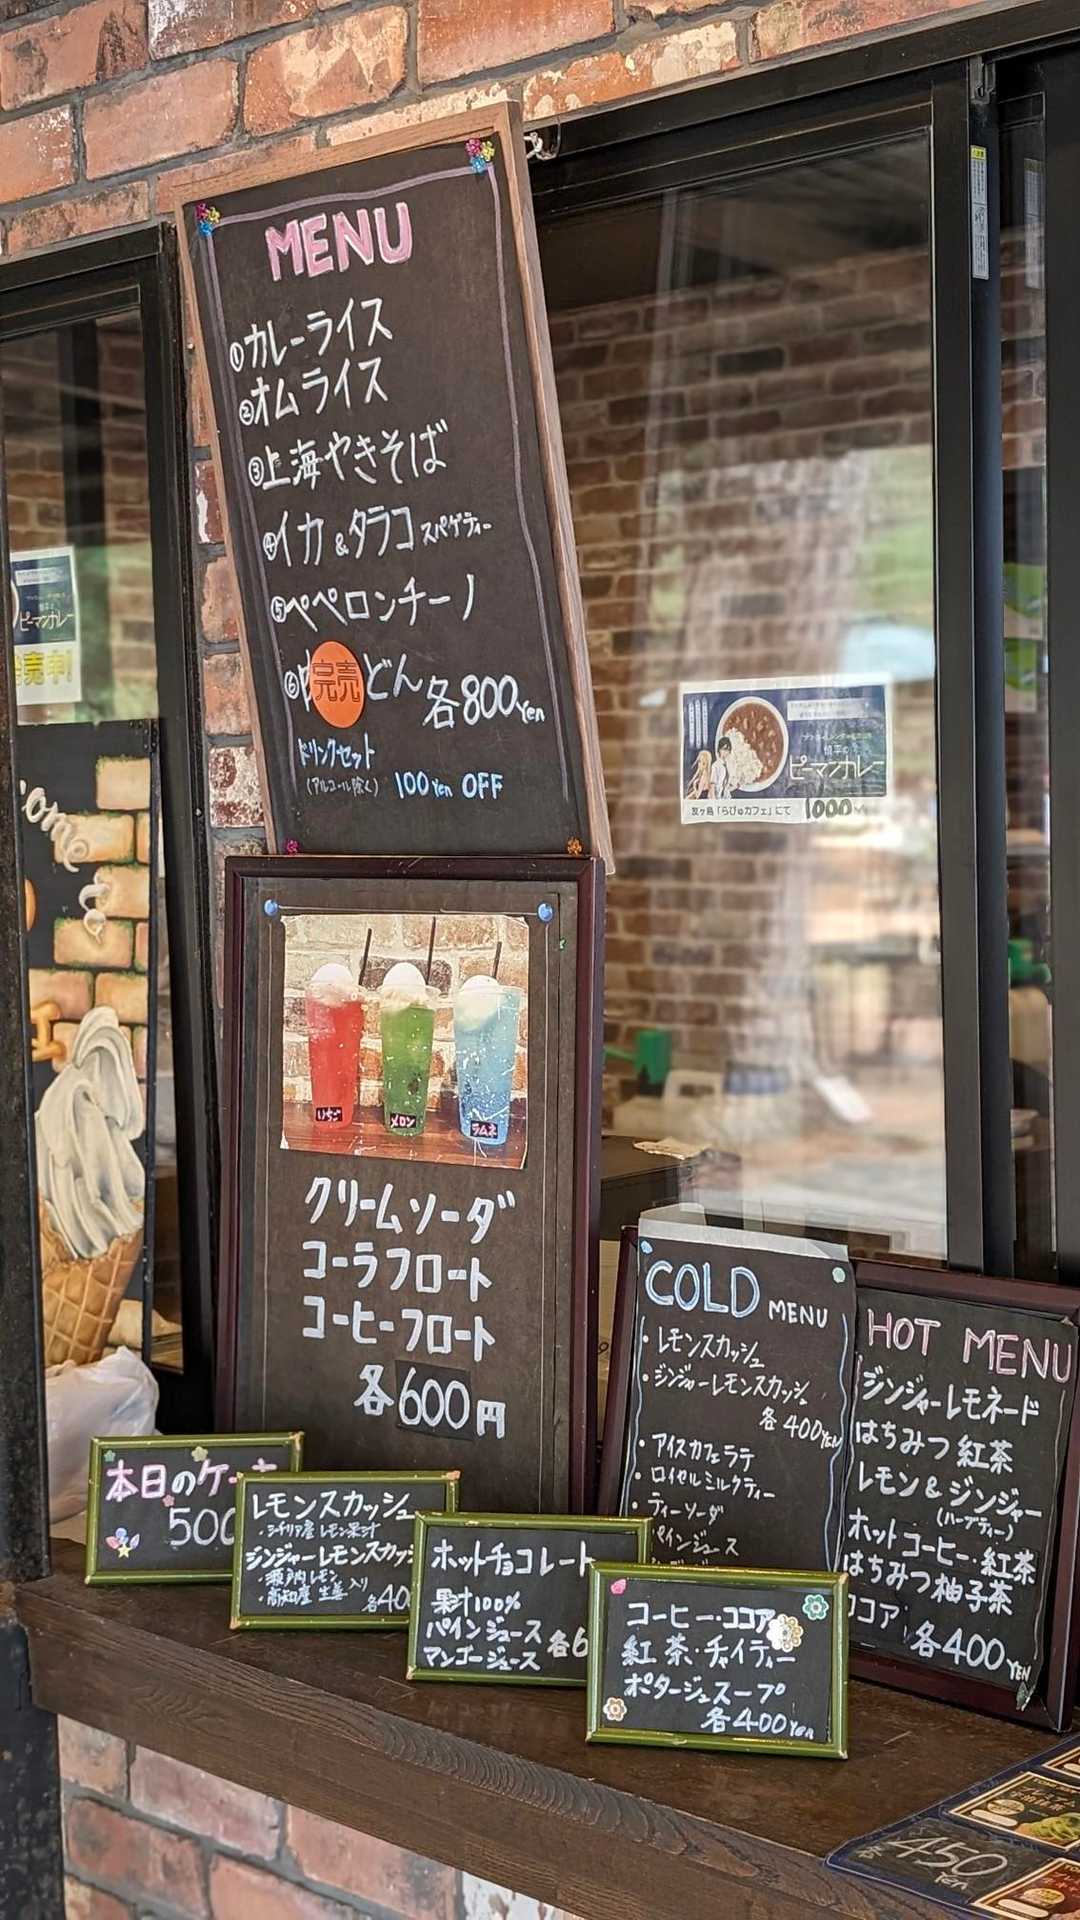 MENU
①カレーライス
②オムライス
③上海やきそば
④イカ&タラコ スパゲティー
⑤ペペロンチーノ
⑥ 完売 どん 各800Yen
ドリンクセット
(アルコール除く) 100Yen OFF
ピーマンカレー
売中!
ピーマンカレー
友ヶ島「らぴゅカフェ」にて 1000
いちご
メロン
ラムネ
クリームソーダ
コーラフロート
コーヒーフロート
各600円
COLD MENU
・レモンスカッシュ
・ジンジャーレモンスカッシュ
各400YEN
・アイスカフェラテ
・ロイヤルミルクティー
・ティーソーダ
パインジュース
HOT MENU
ジンジャーレモネード
はちみつ紅茶
レモン&ジンジャー
(ハーブティー)
ホットコーヒー・紅茶
はちみつ柚子茶
ココア 各400YEN
本日のケーキ
500
レモンスカッシュ
・シチリア産レモン果汁
ジンジャーレモンスカッシ
・瀬戸内レモン
・高知産生姜入り
各40
ホットチョコレート
果汁100%
パインジュース
マンゴージュース 各6
コーヒー・ココア
紅茶・チャイティー
ポタージュスープ
各400Yen
450
YEN